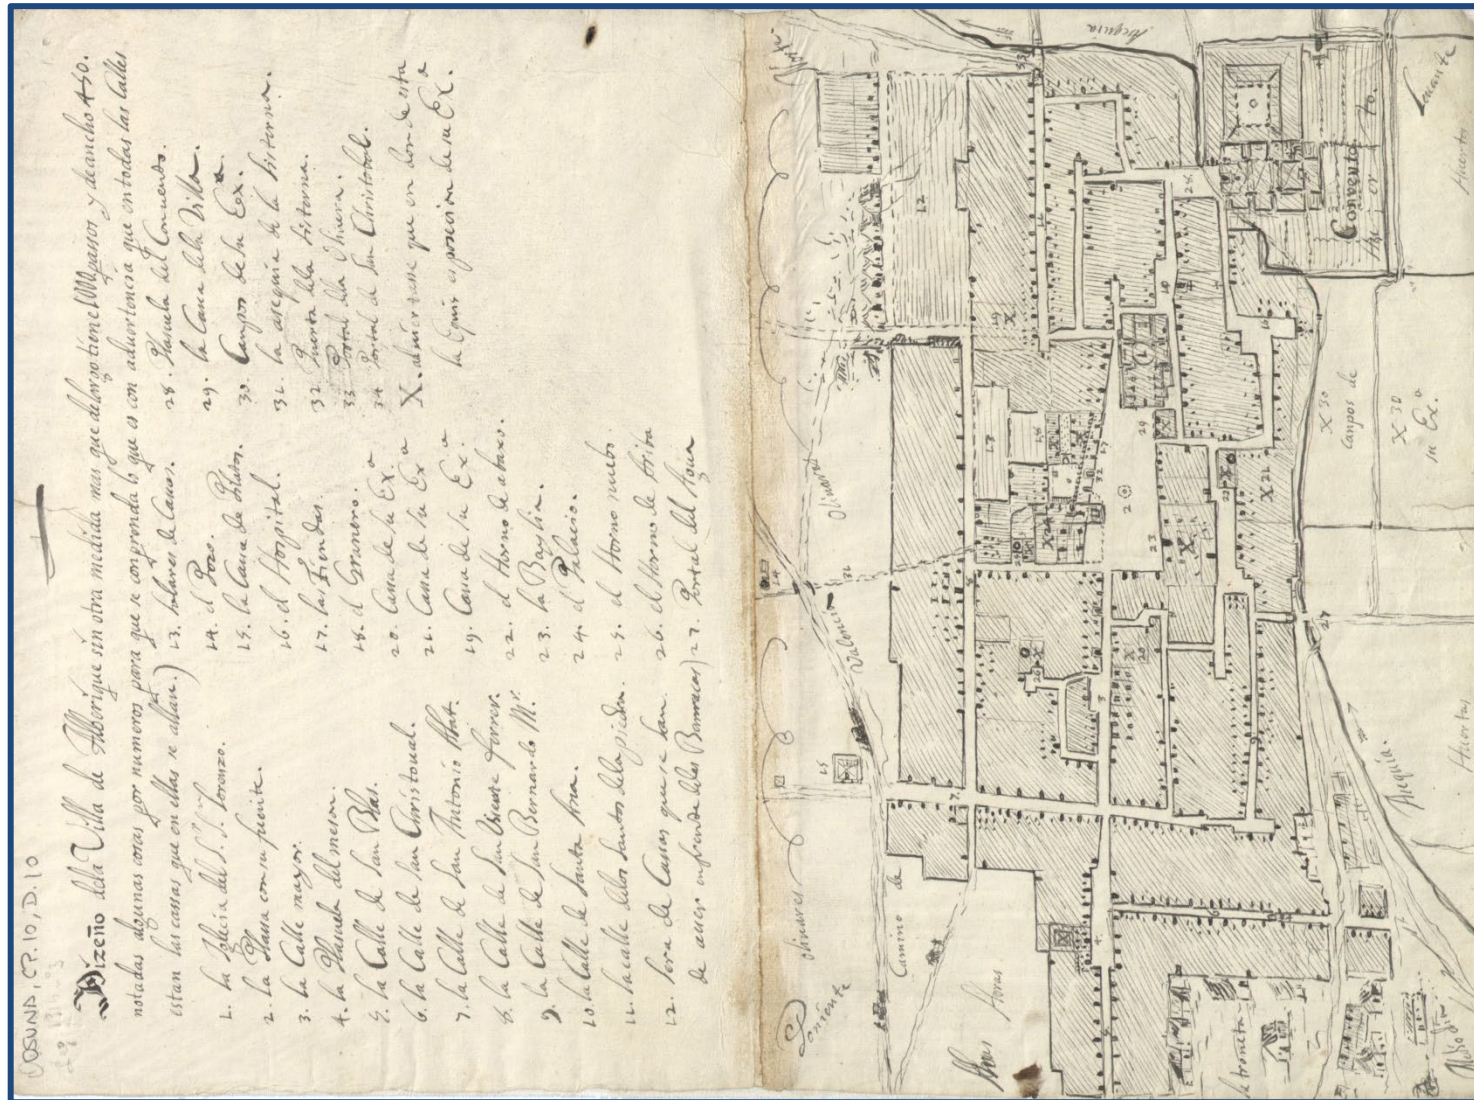 OSUNA, CP. 10, D. 10
Dizeño dela Villa de Alberique sin otra medida mas que de largo tiene 1000 passos y de ancho 450.
notadas algunas cosas por numeros para que se conprenda lo que es con adbertencia que en todas las Calles
estan las cassas que en ellas se allan.
1. la Iglecia del S.r S. Lorenzo.
2. la Plassa con su fuente.
3. la Calle mayor.
4. la Plasuela del meson.
5. la Calle de San Blas.
6. la Calle de San Christoual.
7. la Calle de San Antonio Abat.
8. la Calle de San Visente ferrer.
9. la Calle de San Bernardo M.r
10. la Calle de Santa Ana.
11. la calle delos Santos dela piedra.
12. Sera de Cassas que se han
de aser enfrente deles Barracas)
13. solares de Casas.
14. el Poso.
15. la Casa de Pilatos.
16. el Hospital.
17. las tiendas.
18. el Granero.
20. Casa de su Ex.a
21. Casa de su Ex.a
19. Casa de su Ex.a
22. el Horno de abaxo.
23. la Baylia.
24. el Palacio.
25. el Horno nuebo.
26. el Horno de Arriba
27. Portal del Agua
28. Plasuela del Conuento.
29. la Casa dela Villa.
30. Campos de su Ex.a
31. la asequia de la sisterna.
32 Puerta dela sisterna.
33 Portal dela
34 Portal de San Christobal.
X. adviertasse que en donde esta
la equis es posecion de su Ex.a
Poniente
oliuares
Camino de
Valencia
Oliuares
Eras
Asequia
Conuento
Huerto.
Leuante
Huertas
X 30
Canpos de
X 30
su Ex.a
Asequia.
Huertas
Medio dia